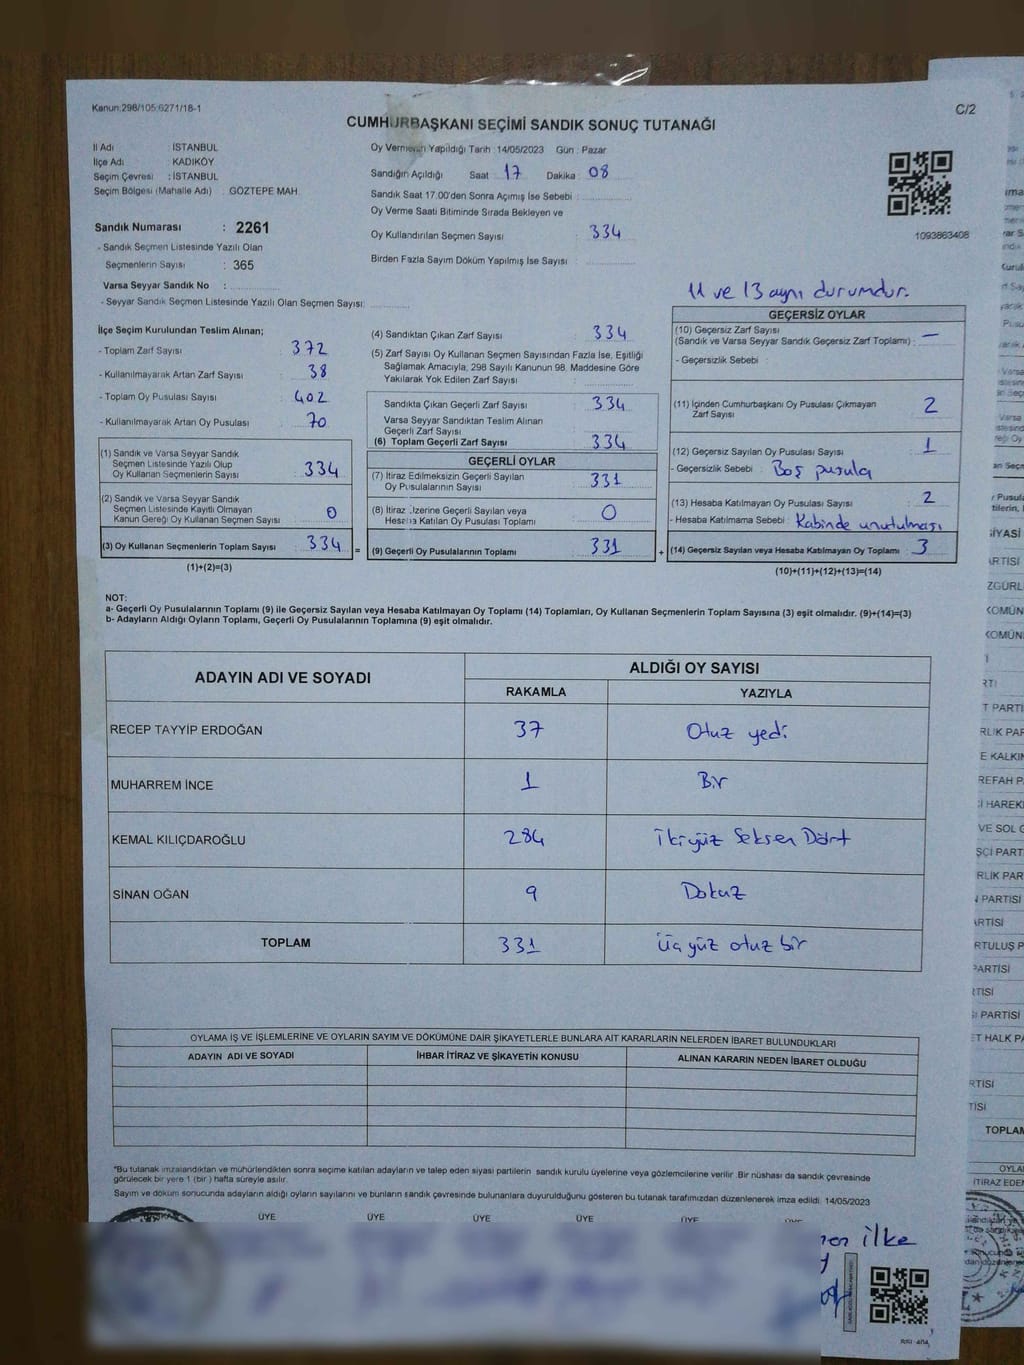 Kanun:298/105:6271/18-1
C/2
CUMHURBAŞKANI SEÇİMİ SANDIK SONUÇ TUTANAĞI
İl Adı : İSTANBUL
İlçe Adı : KADIKÖY
Seçim Çevresi : İSTANBUL
Seçim Bölgesi (Mahalle Adı) : GÖZTEPE MAH.
Sandık Numarası : 2261
- Sandık Seçmen Listesinde Yazılı Olan
Seçmenlerin Sayısı : 365
Varsa Seyyar Sandık No :
- Seyyar Sandık Seçmen Listesinde Yazılı Olan Seçmen Sayısı:
Oy Vermenin Yapıldığı Tarih : 14/05/2023 Gün : Pazar
Sandığın Açıldığı Saat 17 Dakika : 08
Sandık Saat 17.00'den Sonra Açımış İse Sebebi :
Oy Verme Saati Bitiminde Sırada Bekleyen ve
Oy Kullandırılan Seçmen Sayısı : 334
Birden Fazla Sayım Döküm Yapılmış İse Sayısı :
1093863408
11 ve 13 aynı durumdur.
İlçe Seçim Kurulundan Teslim Alınan;
- Toplam Zarf Sayısı : 372
- Kullanılmayarak Artan Zarf Sayısı : 38
- Toplam Oy Pusulası Sayısı : 402
- Kullanılmayarak Artan Oy Pusulası : 70
(1) Sandık ve Varsa Seyyar Sandık
Seçmen Listesinde Yazılı Olup
Oy Kullanan Seçmenlerin Sayısı : 334
(2) Sandık ve Varsa Seyyar Sandık
Seçmen Listesinde Kayıtlı Olmayan
Kanun Gereği Oy Kullanan Seçmen Sayısı : 0
(3) Oy Kullanan Seçmenlerin Toplam Sayısı : 334
(1)+(2)=(3)
(4) Sandıktan Çıkan Zarf Sayısı : 334
(5) Zarf Sayısı Oy Kullanan Seçmen Sayısından Fazla İse, Eşitliği
Sağlamak Amacıyla, 298 Sayılı Kanunun 98. Maddesine Göre
Yakılarak Yok Edilen Zarf Sayısı :
Sandıkta Çıkan Geçerli Zarf Sayısı : 334
Varsa Seyyar Sandıktan Teslim Alınan
Geçerli Zarf Sayısı :
(6) Toplam Geçerli Zarf Sayısı : 334
GEÇERLİ OYLAR
(7) İtiraz Edilmeksizin Geçerli Sayılan
Oy Pusulalarının Sayısı : 331
(8) İtiraz Üzerine Geçerli Sayılan veya
Hesaba Katılan Oy Pusulası Toplamı : 0
= (9) Geçerli Oy Pusulalarının Toplamı : 331
GEÇERSİZ OYLAR
(10) Geçersiz Zarf Sayısı
(Sandık ve Varsa Seyyar Sandık Geçersiz Zarf Toplamı) : —
- Geçersizlik Sebebi :
(11) İçinden Cumhurbaşkanı Oy Pusulası Çıkmayan
Zarf Sayısı : 2
(12) Geçersiz Sayılan Oy Pusulası Sayısı : 1
- Geçersizlik Sebebi : Boş pusula
(13) Hesaba Katılmayan Oy Pusulası Sayısı : 2
- Hesaba Katılmama Sebebi : Kabinde unutulması
+ (14) Geçersiz Sayılan veya Hesaba Katılmayan Oy Toplamı : 3
(10)+(11)+(12)+(13)=(14)
NOT:
a- Geçerli Oy Pusulalarının Toplamı (9) ile Geçersiz Sayılan veya Hesaba Katılmayan Oy Toplamı (14) Toplamları, Oy Kullanan Seçmenlerin Toplam Sayısına (3) eşit olmalıdır. (9)+(14)=(3)
b- Adayların Aldığı Oyların Toplamı, Geçerli Oy Pusulalarının Toplamına (9) eşit olmalıdır.
ADAYIN ADI VE SOYADI
ALDIĞI OY SAYISI
RAKAMLA YAZIYLA
RECEP TAYYİP ERDOĞAN 37 Otuz yedi
MUHARREM İNCE 1 Bir
KEMAL KILIÇDAROĞLU 284 İkiyüz Seksen Dört
SİNAN OĞAN 9 Dokuz
TOPLAM 331 Üçyüz otuz bir
OYLAMA İŞ VE İŞLEMLERİNE VE OYLARIN SAYIM VE DÖKÜMÜNE DAİR ŞİKAYETLERLE BUNLARA AİT KARARLARIN NELERDEN İBARET BULUNDUKLARI
ADAYIN ADI VE SOYADI İHBAR İTİRAZ VE ŞİKAYETİN KONUSU ALINAN KARARIN NEDEN İBARET OLDUĞU
*Bu tutanak imzalandıktan ve mühürlendikten sonra seçime katılan adayların ve talep eden siyasi partilerin sandık kurulu üyelerine veya gözlemcilerine verilir .Bir nüshası da sandık çevresinde
görülecek bir yere 1 (bir ) hafta süreyle asılır.
Sayım ve döküm sonucunda adayların aldığı oyların sayılarını ve bunların sandık çevresinde bulunanlara duyurulduğunu gösteren bu tutanak tarafımızdan düzenlenerek imza edildi. 14/05/2023
ÜYE ÜYE ÜYE ÜYE ÜYE
ilke
TOPLAM